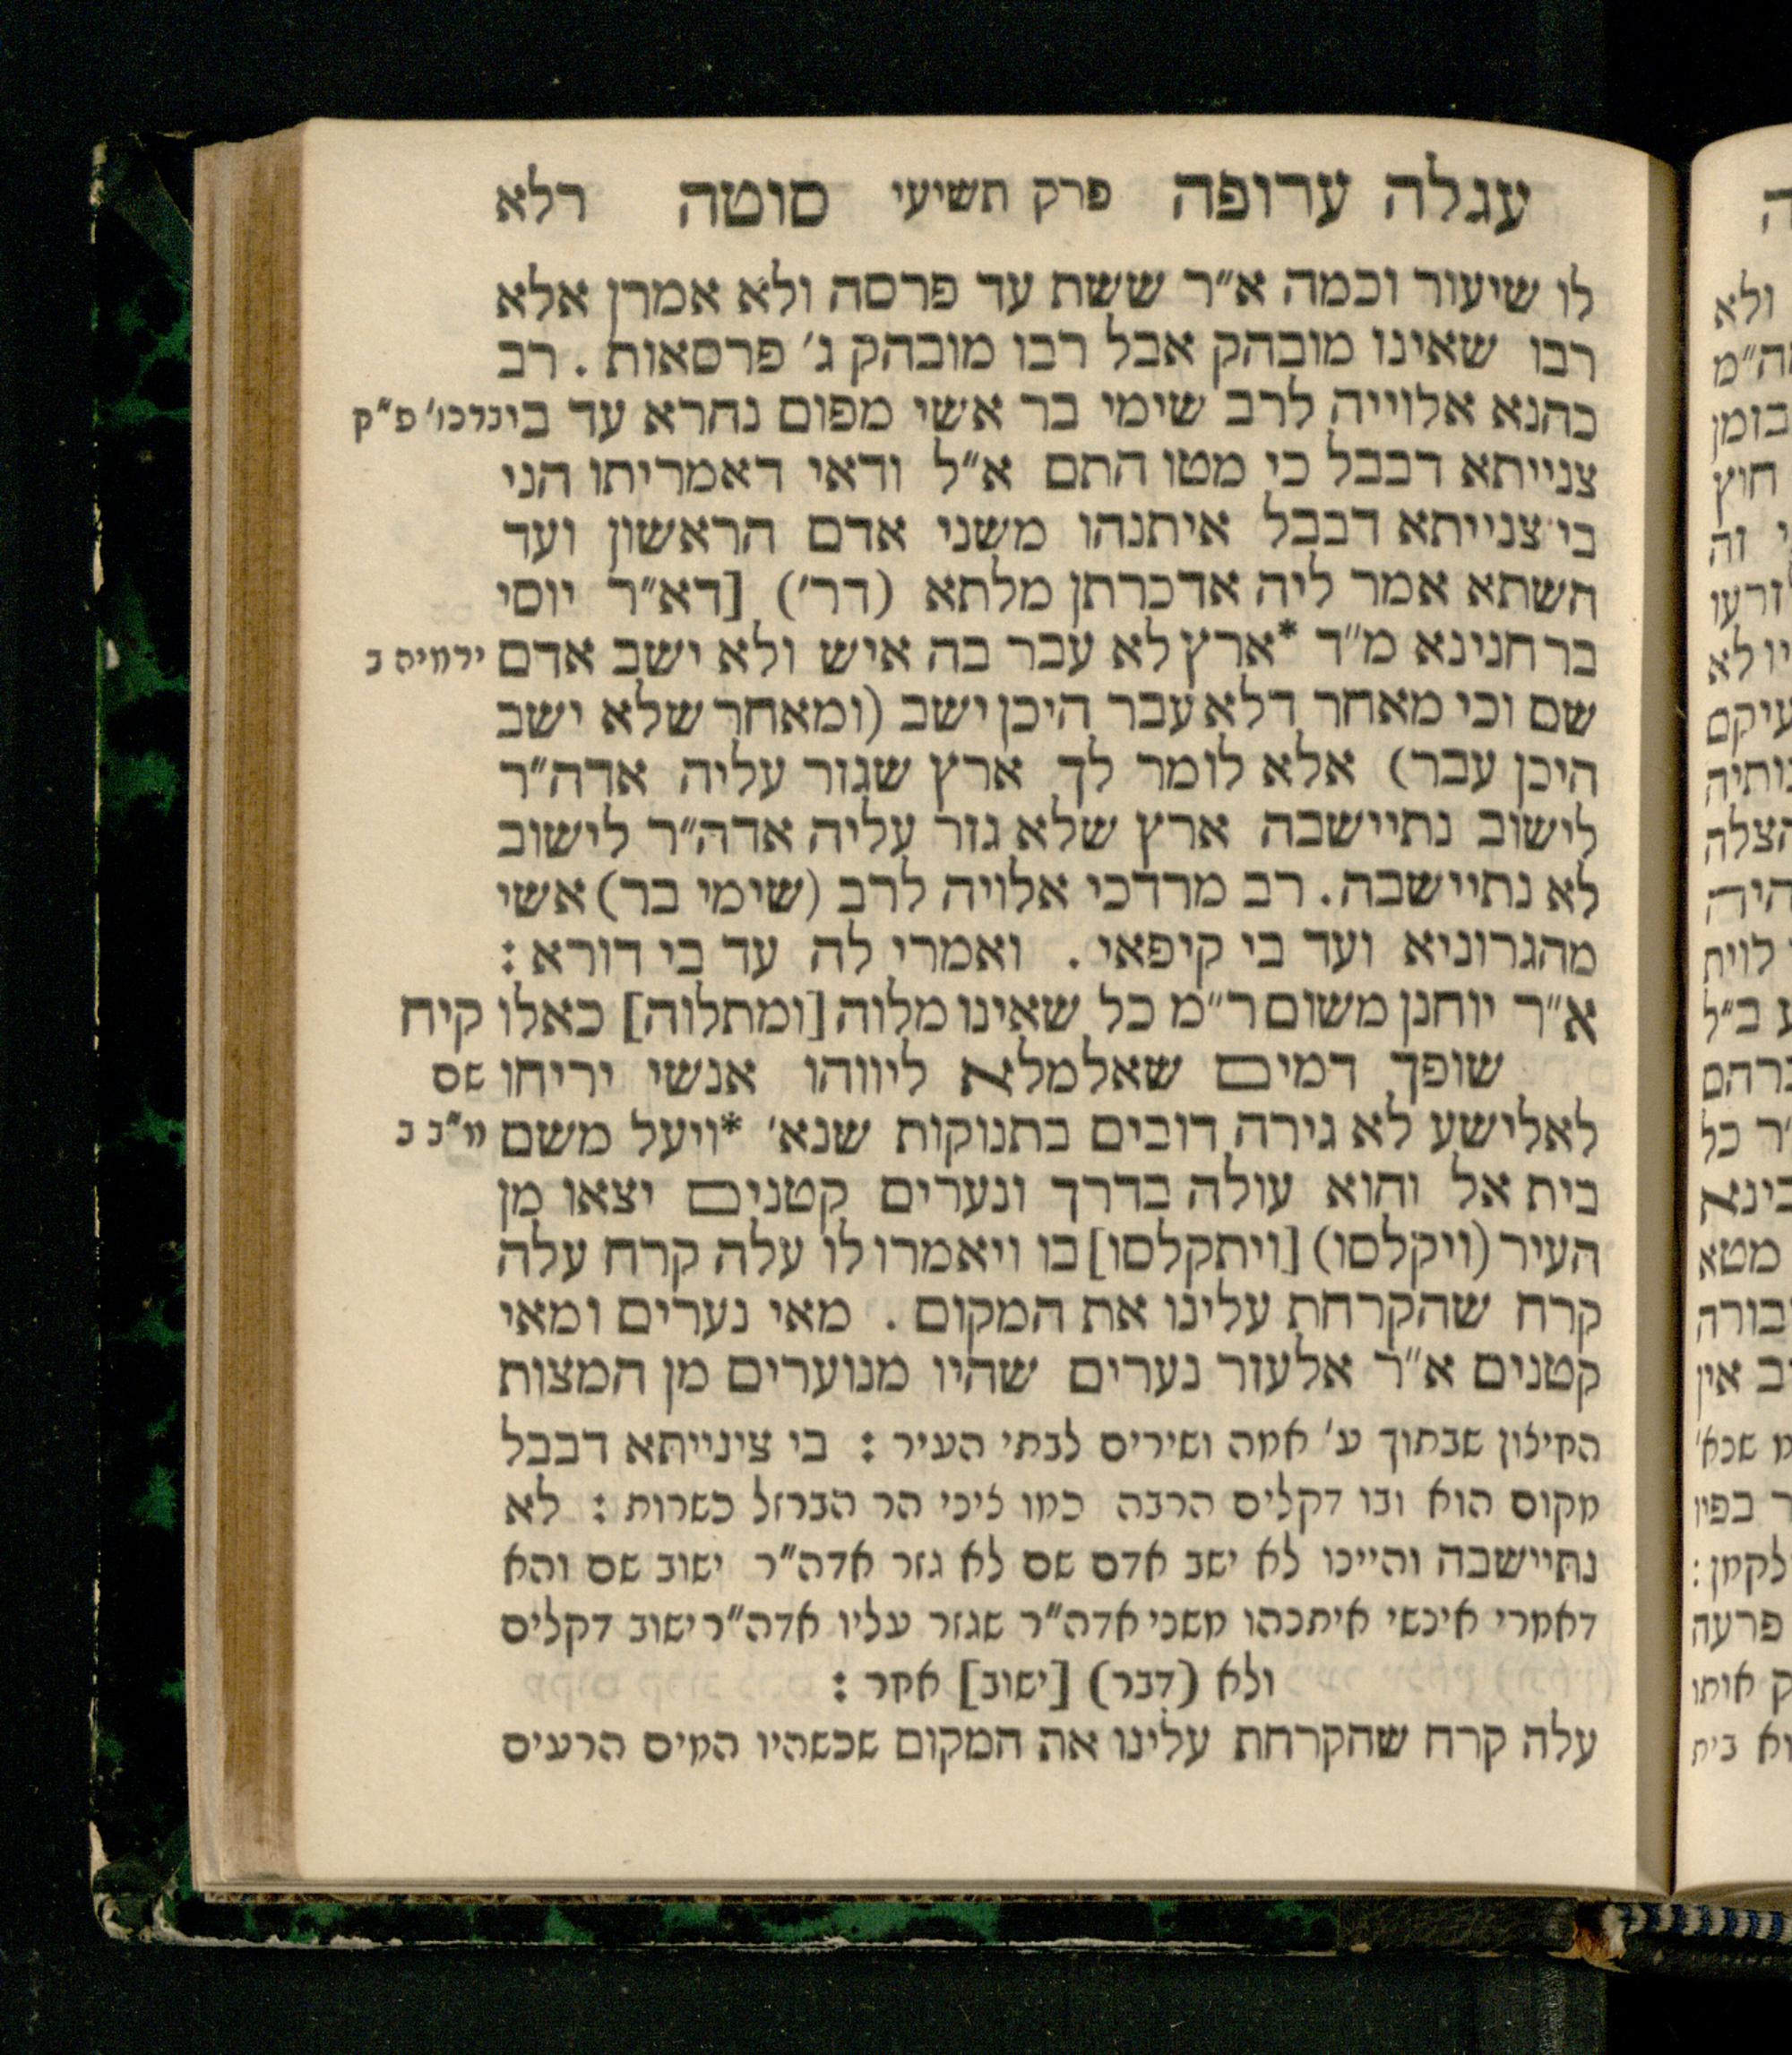 עגלה ערופה פרק תשיעי סוטה רלא
לו שיעור וכמה א״ר ששת עד פרסה ולא אמרן אלא
רבו שאינו מובהק אבל רבו מובהק ג׳ פרסאות . רב
כהנא אלוייה לרב שימי בר אשי מפום נהרא עד בי ברכו׳ פ״ק
צנייתא דבבל כי מטו התם א״ל ודאי דאמריתו הני
בי צנייתא דבבל איתנהו משני אדם הראשון ועד
השתא אמר ליה אדכרתן מלתא (דר׳) [דא״ר יוסי
בר חנינא מ״ד *ארץ לא עבר בה איש ולא ישב אדם ירמיה ב
שם וכי מאחר דלא עבר היכן ישב (ומאחר שלא ישב
היכן עבר) אלא לומר לך ארץ שגזר עליה אדה״ר
לישוב נתיישבה ארץ שלא גזר עליה אדה״ר לישוב
לא נתיישבה . רב מרדכי אלויה לרב (שימי בר) אשי
מהגרוניא ועד בי קיפאי . ואמרי לה עד בי דורא :
א״ר יוחנן משום ר״מ כל שאינו מלוה [ומתלוה] כאלו קיח
שופך דמים שאלמלא ליווהו אנשי יריחו שם
לאלישע לא גירה דובים בתנוקות שנא׳ *ויעל משם מ״ב ב
בית אל והוא עולה בדרך ונערים קטנים יצאו מן
העיר (ויקלסו) [ויתקלסו] בו ויאמרו לו עלה קרח עלה
קרח שהקרחת עלינו את המקום . מאי נערים ומאי
קטנים א״ר אלעזר נערים שהיו מנוערים מן המצות
החילון שבתוך ע׳ אמה ושירים לבתי העיר : בי ציניייתא דבבל
מקום הוא ובו דקלים הרבה כמו ציני הר הברזל כשרות : לא
נתיישבה והיינו לא ישב אדם שם לא גזר אדה״ר ישוב שם והא
דאמרי אינשי איתנהו משני אדה״ר שגזר עליו אדה״ר ישוב דקלים
ולא (דבר) [ישוב] אחר :
עלה קרח שהקרחת עלינו את המקום שכשהיו המים הרעים